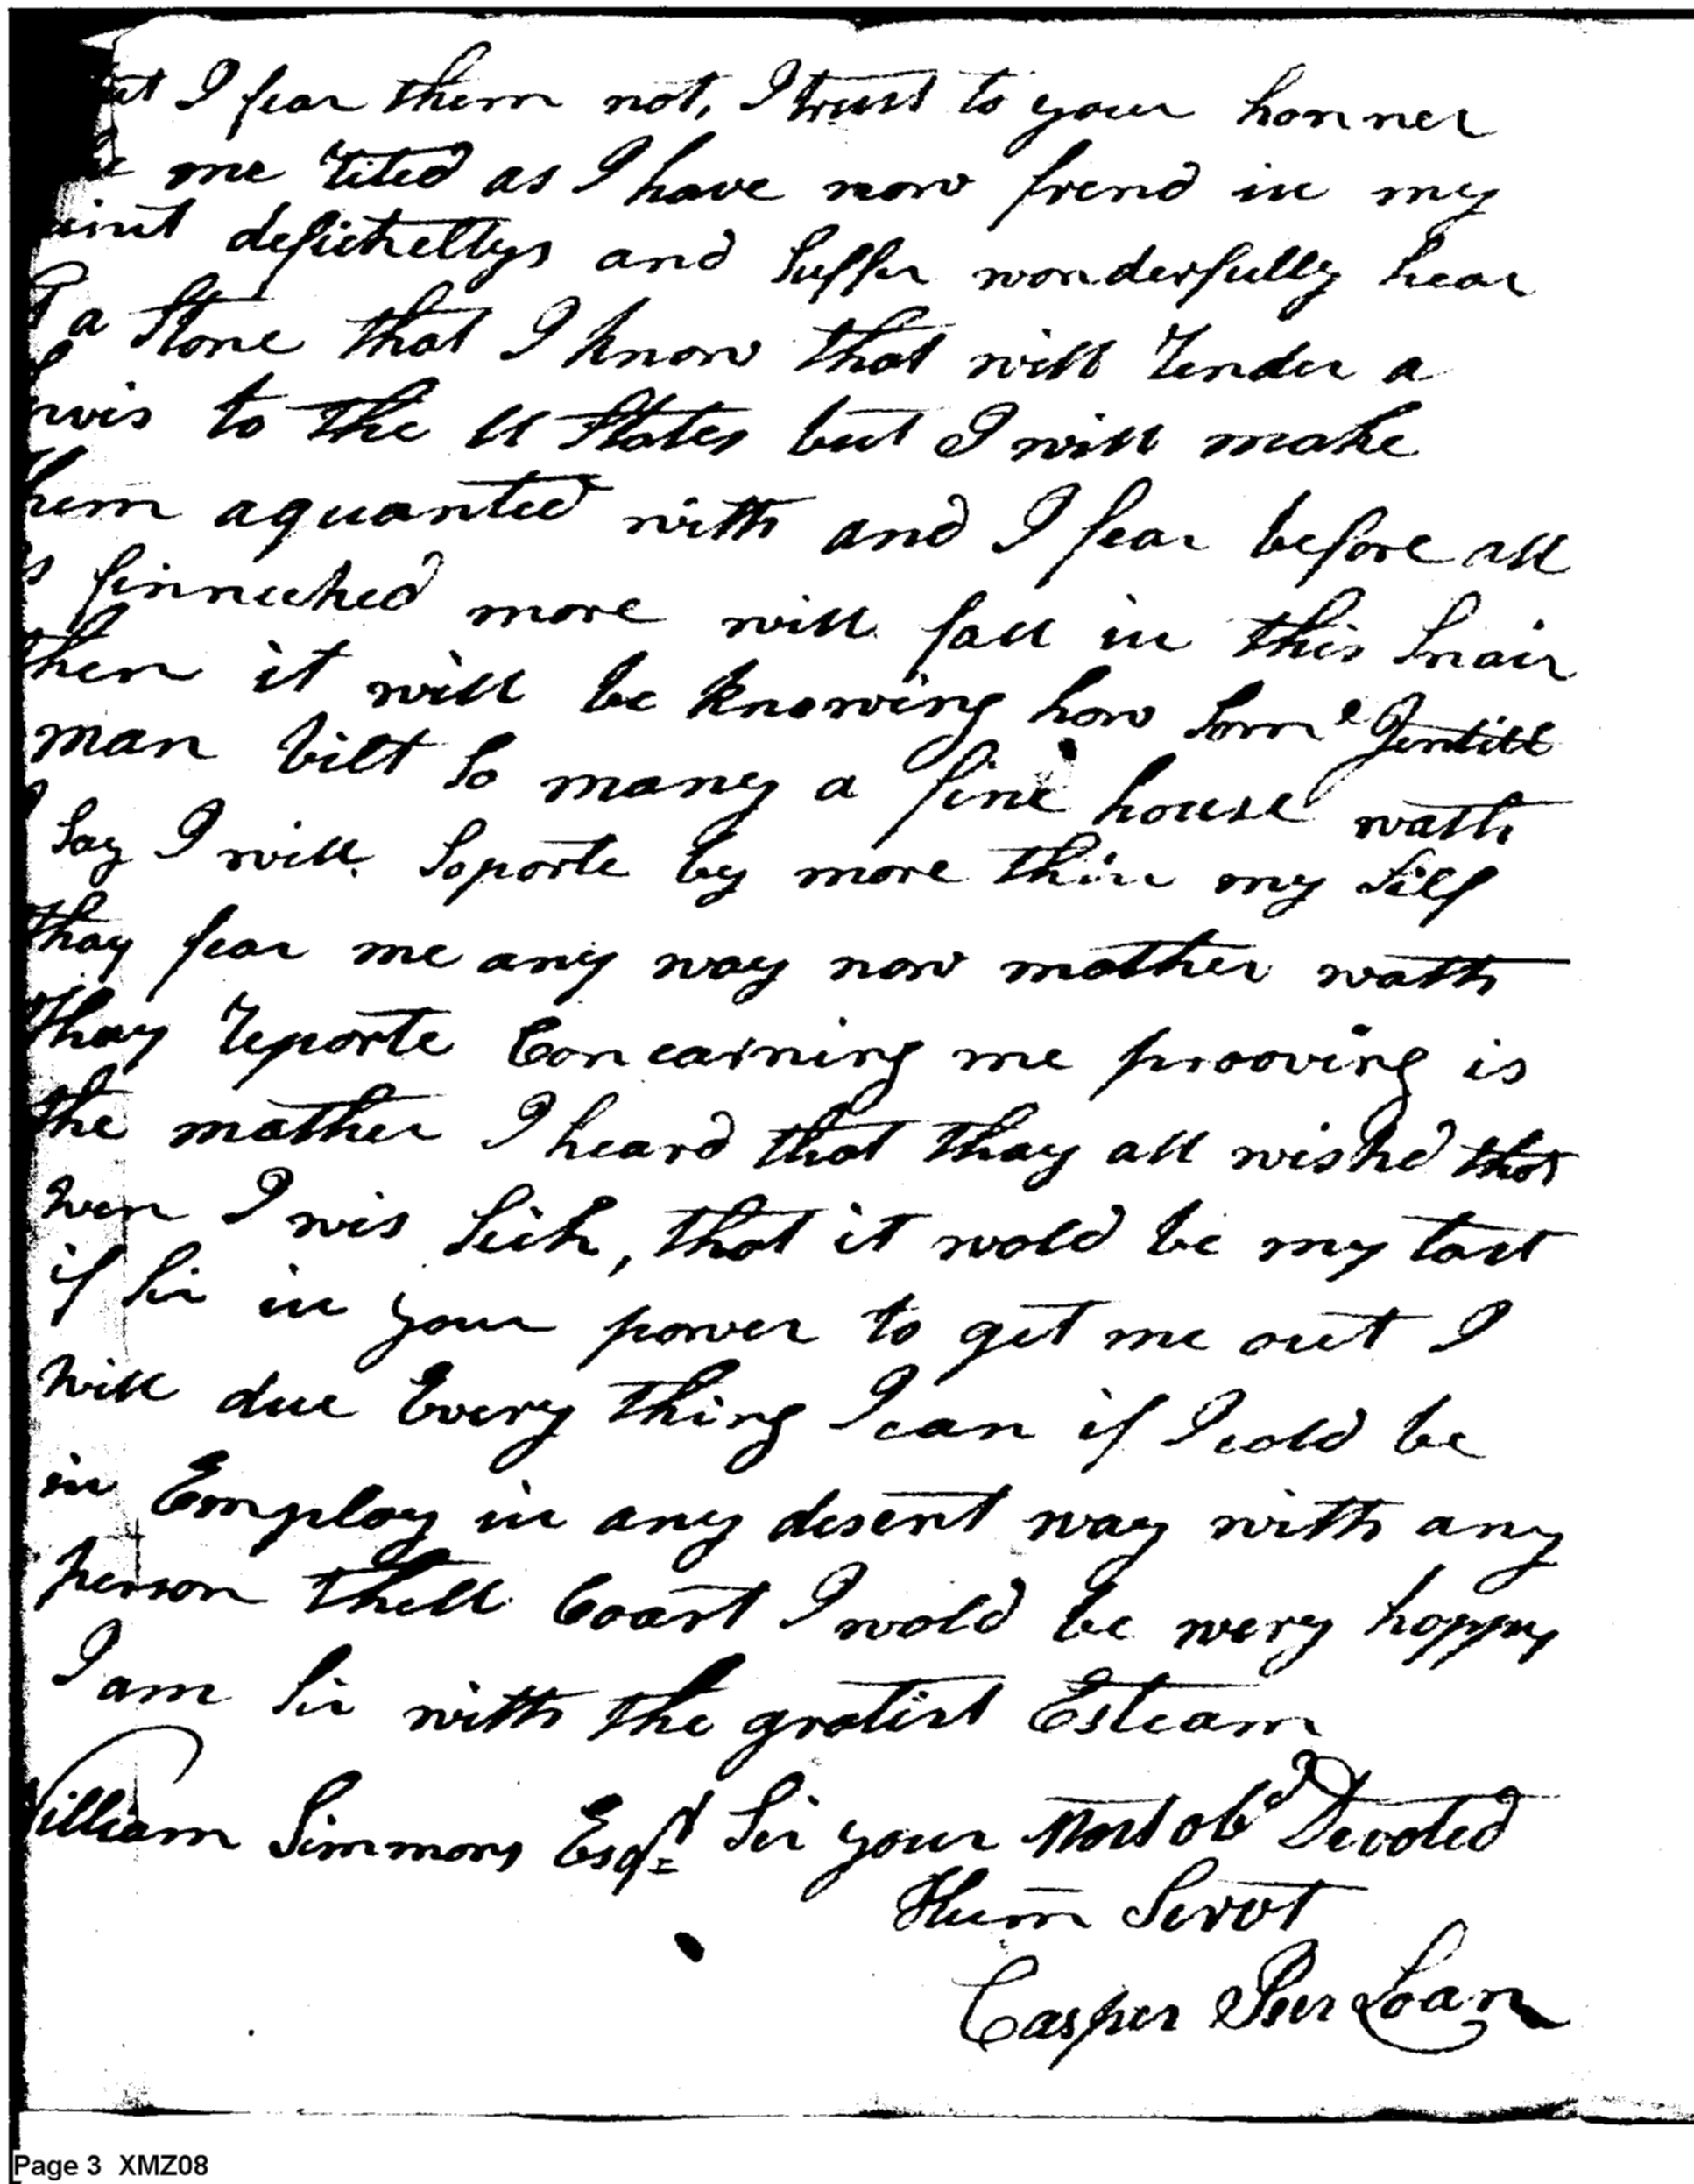 I fear them not, I trust to your honner
me rited as I have now frend in my
defichelltys and Suffer wonderfully hear
a Stone that I know that will render a
to the U States but I will make
aquanted with and I fear before all
finneched more will fall in this Snair
then it will be knowing how Some Jentill
man bilt So maney a fine house wath
I Say I will Soporte by more then my Self
thay fear me any way now mather wath
thay reporte Concarning me prooving is
the mather I heard that thay all wished that
wen I wis Sick, that it wold be my last
if Sir in your power to get me out I
will due Every thing I can if I cold be
in Employ in any desent way with any
person thell Coart I wold be wery happy
I am Sir with the gratist Esteam
William Simmons Esqr. Sir your Most obd Devoted
Hum Servt
Casper Iser Loan
Page 3 XMZ08